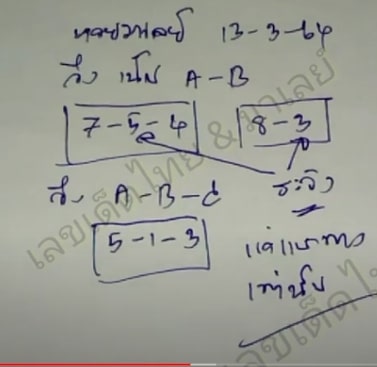 หวยมาเลย์ 13-3-64
วิ่ง เน้น A-B
7-5-4 8-3
วิ่ง A-B-C ระวัง
5-1-3
แค่แนวทาง
เท่านั้น
เลขเด็ดไทย & มาเลย์
เลขเด็ดไ